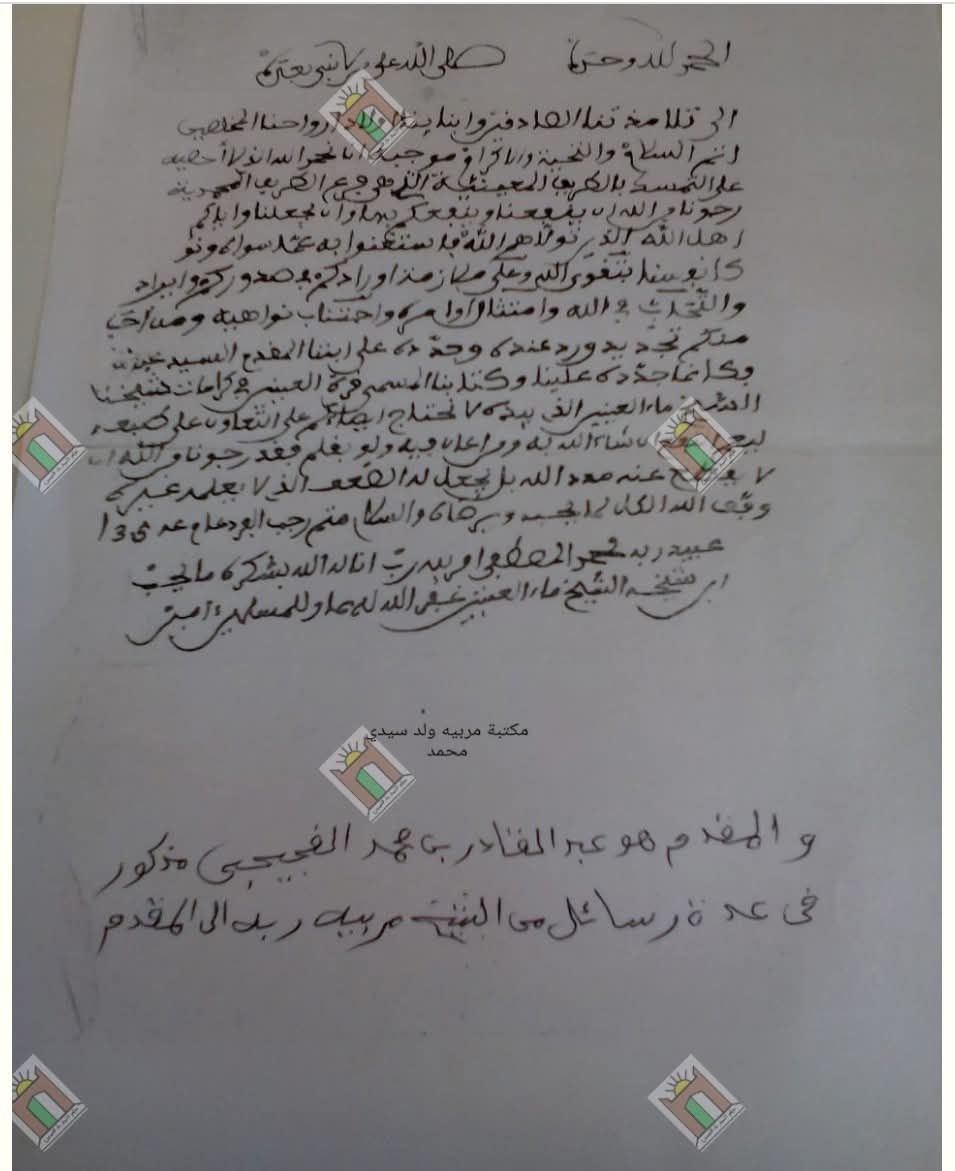 الحمد لله وحده صلى الله على من لا نبي بعده
الى تلامذتنا الصادقين وابنائنا اولاد ارواحنا المخلصين
انتم السلام والتحية والاكرام موجبه انا نحمد الله الذي لا احصيه
على التمسك بالطريقة المعينية التي هي فرع الطريقة المحمدية
رجونا من الله ان ينفعنا وينفعكم بها وان يجعلنا واياكم
اهل الله الذين تولاهم الله فاستغنوا به عما سواه ونو
صدوركم وايراد
والتحاب في الله وامتثال اوامره واجتناب نواهيه ومن احب
منكم تجديد ورد عنده وجدده على ابننا المقدم السيد
فكانما جدده علينا وكتابنا المسمى قرة العينين في كرامات شيخنا
الشيخ ماء العينين الذي بيده لا نحتاج ايصاءكم على التعاون على طبعه
ان شاء الله به ومن اعان فيه ولو بقلم فقد رجونا من الله ان
لا عنه مدد الله بل يجعل له الضعف الذي لا يعلمه غيره
وفق الله الكل لما يحبه ويرضاه والسلام متم رجب الفرد عام
عبيد ربه محمد المصطفى مربيه رب اناله الله بشكره ما يحب
ابن شيخه الشيخ ماء العينين غفر الله لهما وللمسلمين امين
مكتبة مربيه ولد سيدي
محمد
و المقدم هو عبد القادر بن محمد الفجيجي مذكور
في عدة رسائل من الشيخ مربيه ربه الى المقدم